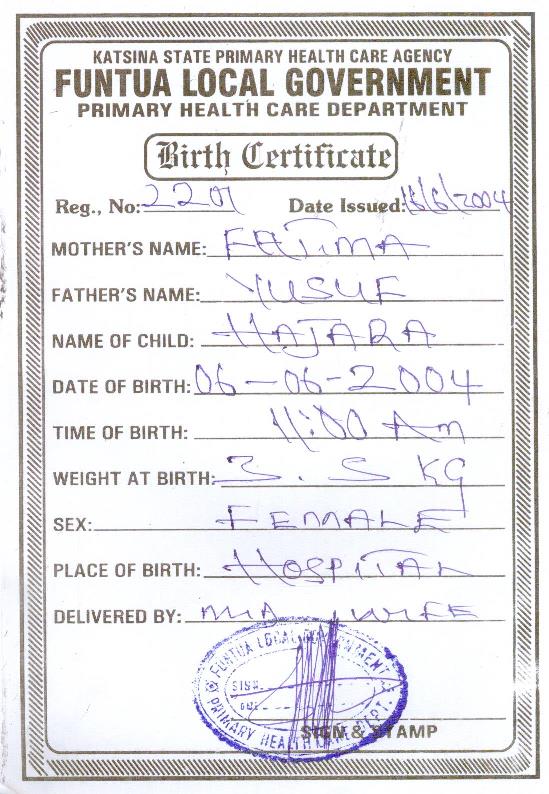 KATSINA STATE PRIMARY HEALTH CARE AGENCY
FUNTUA LOCAL GOVERNMENT
PRIMARY HEALTH CARE DEPARTMENT
Birth Certificate
Reg., No: 2201 Date Issued: 16/6/2004
MOTHER'S NAME: FATIMA
FATHER'S NAME: YUSUF
NAME OF CHILD: HAJARA
DATE OF BIRTH: 06-06-2004
TIME OF BIRTH: 11:00 Am
WEIGHT AT BIRTH: 3.5 KG
SEX: FEMALE
PLACE OF BIRTH: HOSPITAL
DELIVERED BY: MID WIFE
FUNTUA LOCAL GOVERNMENT
SIGN.
PRIMARY HEALTH CARE DEPT.
SIGN & STAMP